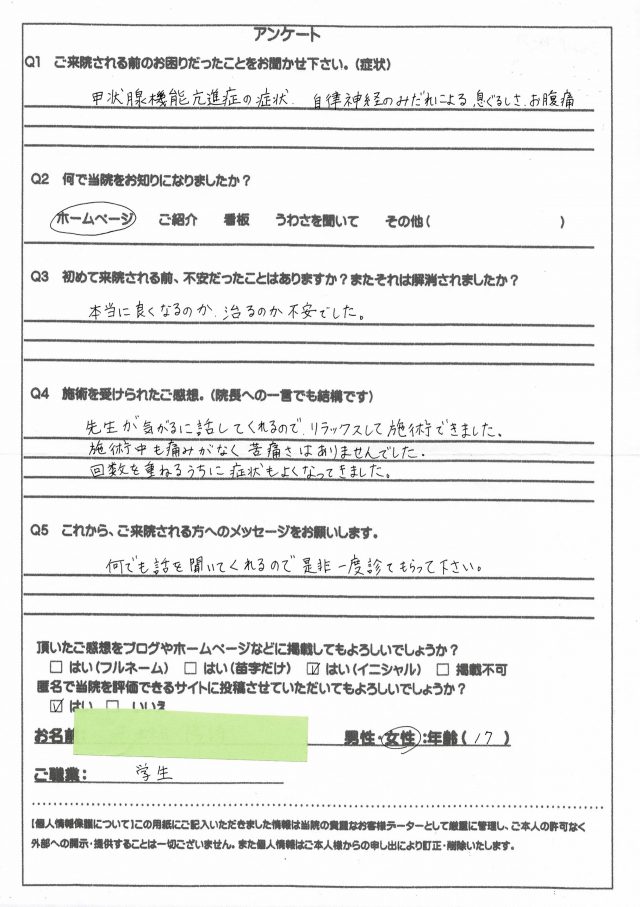 アンケート
Q1 ご来院される前のお困りだったことをお聞かせ下さい。(症状)
甲状腺機能亢進症の症状. 自律神経のみだれによる、息ぐるしさ、お腹痛
Q2 何で当院をお知りになりましたか？
ホームページ ご紹介 看板 うわさを聞いて その他( )
Q3 初めて来院される前、不安だったことはありますか？またそれは解消されましたか？
本当に良くなるのか、治るのか不安でした。
Q4 施術を受けられたご感想。(院長への一言でも結構です)
先生が気がるに話してくれるので、リラックスして施術できました、
施術中も痛みがなく苦痛さはありませんでした.
回数を重ねるうちに症状もよくなってきました。
Q5 これから、ご来院される方へのメッセージをお願いします。
何でも話を聞いてくれるので是非一度診てもらって下さい。
頂いたご感想をブログやホームページなどに掲載してもよろしいでしょうか？
□ はい(フルネーム) □ はい(苗字だけ) ☑ はい(イニシャル) □ 掲載不可
匿名で当院を評価できるサイトに投稿させていただいてもよろしいでしょうか？
☑ はい □ いいえ
お名前 男性・女性:年齢( 17 )
ご職業: 学生
【個人情報保護について】この用紙にご記入いただきました情報は当院の貴重なお客様データーとして厳重に管理し、ご本人の許可なく
外部への開示・提供することは一切ございません。また個人情報はご本人様からの申し出により訂正・削除いたします。